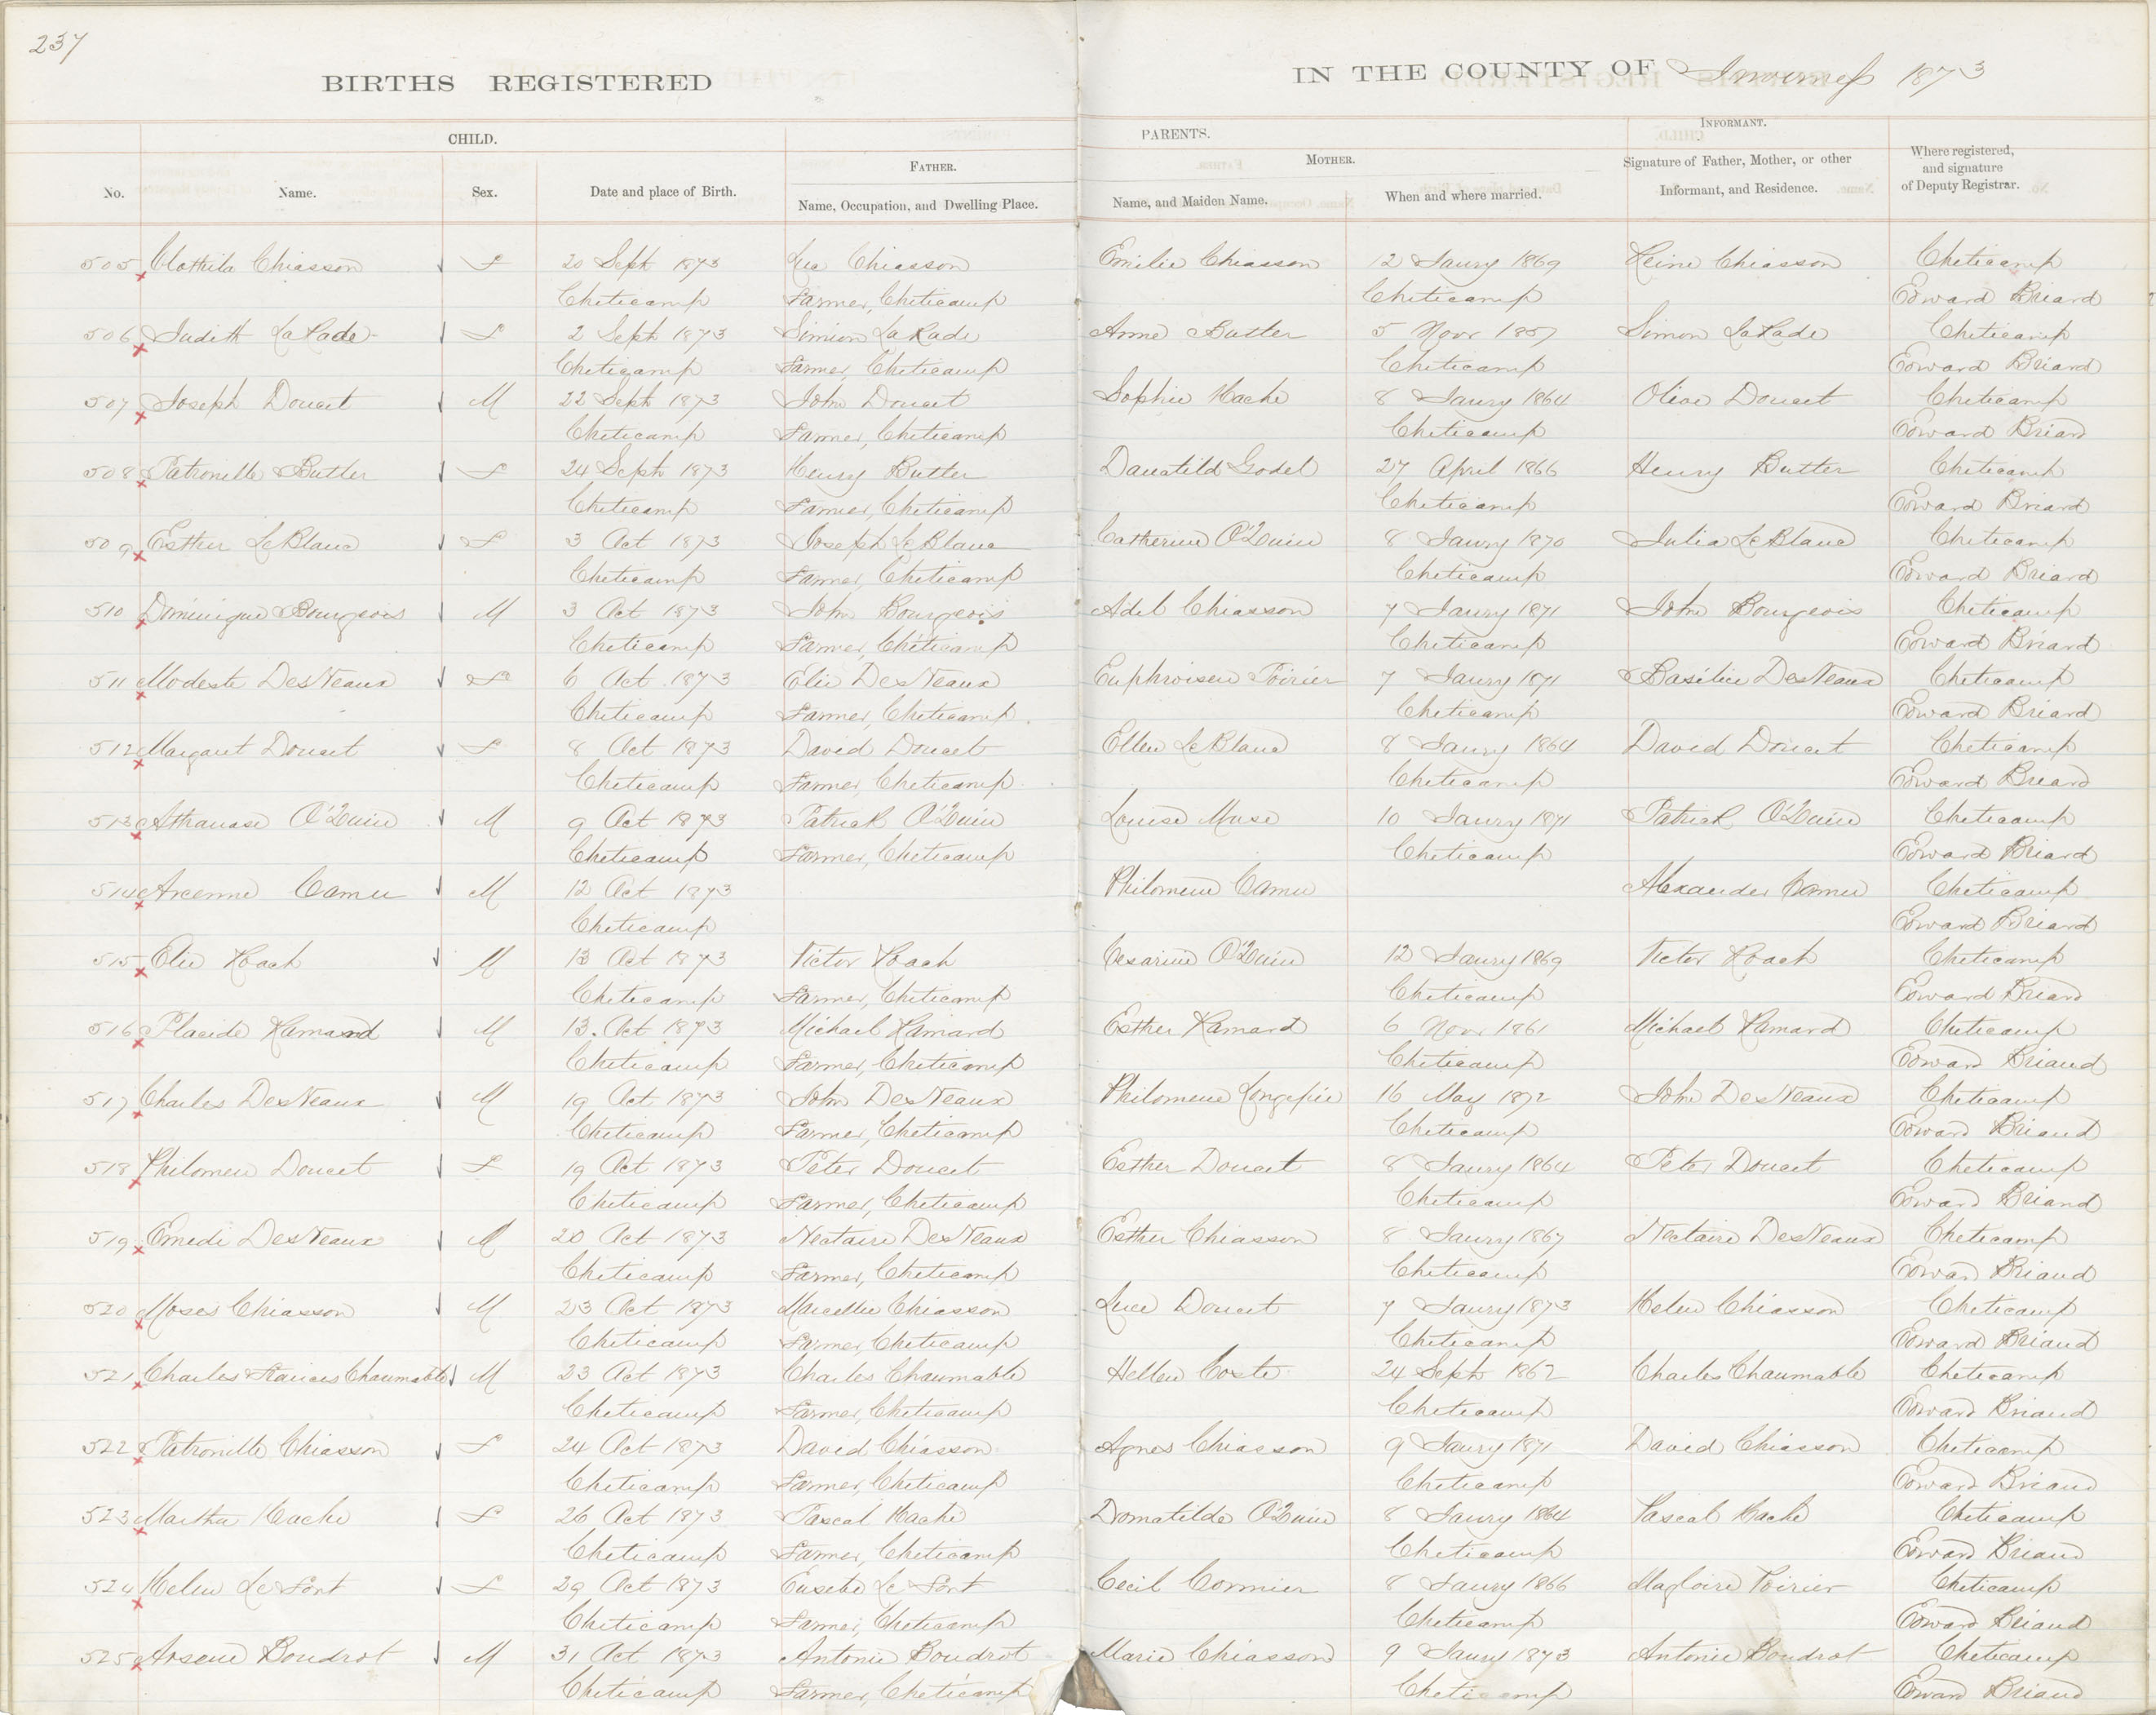 237
BIRTHS REGISTERED IN THE COUNTY OF Inverness 1873
CHILD. PARENTS. INFORMANT.
FATHER. MOTHER. Signature of Father, Mother, or other Where registered, and signature
No. Name. Sex. Date and place of Birth. Name, Occupation, and Dwelling Place. Name, and Maiden Name. When and where married. Informant, and Residence. of Deputy Registrar.
505 Clothila Chiasson F 20 Sept 1873 Chiasson Emilie Chiasson 12 Jaury 1869 Chiasson Cheticamp
Cheticamp Farmer, Cheticamp Cheticamp Edward Briard
506 Judith LaRade F 2 Sept 1873 Simion LaRade Anne Butler 5 Novr 1857 Simon LaRade Cheticamp
Cheticamp Farmer, Cheticamp Cheticamp Edward Briard
507 Joseph Doucet M 22 Sept 1873 John Doucet Sophie Hache 8 Jaury 1864 Olive Doucet Cheticamp
Cheticamp Farmer, Cheticamp Cheticamp Edward Briard
508 Patronille Butler F 24 Sept 1873 Henry Butler Godel 27 April 1866 Henry Butler Cheticamp
Cheticamp Farmer, Cheticamp Cheticamp Edward Briard
509 Esther LeBlanc F 3 Oct 1873 Joseph LeBlanc Catherine O'Quin 8 Jaury 1870 Julia LeBlanc Cheticamp
Cheticamp Farmer, Cheticamp Cheticamp Edward Briard
510 Dominique Bourgeois M 3 Oct 1873 John Bourgeois Adel Chiasson 7 Jaury 1871 John Bourgeois Cheticamp
Cheticamp Farmer, Cheticamp Cheticamp Edward Briard
511 Modeste DesVeaux F 6 Oct 1873 Elie DesVeaux Poirier 7 Jaury 1871 Basilice DesVeaux Cheticamp
Cheticamp Farmer, Cheticamp Cheticamp Edward Briard
512 Margaret Doucet F 8 Oct 1873 David Doucet Ellen LeBlanc 8 Jaury 1864 David Doucet Cheticamp
Cheticamp Farmer, Cheticamp Cheticamp Edward Briard
513 Athanase O'Quin M 9 Oct 1873 Patrick O'Quin Louise Muse 10 Jaury 1871 Patrick O'Quin Cheticamp
Cheticamp Farmer, Cheticamp Cheticamp Edward Briard
514 Arcenne Camu M 12 Oct 1873 Philomene Camu Alexander Camu Cheticamp
Cheticamp Edward Briard
515 Elie Roach M 13 Oct 1873 Victor Roach Cesarine O'Quin 12 Jaury 1869 Victor Roach Cheticamp
Cheticamp Farmer, Cheticamp Cheticamp Edward Briard
516 Placide Ramard M 13. Oct 1873 Michael Ramard Esther Ramard 6 Novr 1861 Michael Ramard Cheticamp
Cheticamp Farmer, Cheticamp Cheticamp Edward Briand
517 Charles DesVeaux M 19 Oct 1873 John DesVeaux Philomene Longepie 16 May 1872 John DesVeaux Cheticamp
Cheticamp Farmer, Cheticamp Cheticamp Edward Briand
518 Philomen Doucet F 19 Oct 1873 Peter Doucet Esther Doucet 8 Jaury 1864 Peter Doucet Cheticamp
Cheticamp Farmer, Cheticamp Cheticamp Edward Briand
519 Emedi DesVeaux M 20 Oct 1873 Nectaire DesVeaux Esther Chiasson 8 Jaury 1867 Nectaire DesVeaux Cheticamp
Cheticamp Farmer, Cheticamp Cheticamp Edward Briand
520 Moses Chiasson M 23 Oct 1873 Marcellin Chiasson Luce Doucet 7 Jaury 1873 Helen Chiasson Cheticamp
Cheticamp Farmer, Cheticamp Cheticamp Edward Briand
521 Charles Frances Chaumable M 23 Oct 1873 Charles Chaumable Hellen Coste 24 Sept 1862 Charles Chaumable Cheticamp
Cheticamp Farmer, Cheticamp Cheticamp Edward Briand
522 Patronille Chiasson F 24 Oct 1873 David Chiasson Agnes Chiasson 9 Jaury 1871 David Chiasson Cheticamp
Cheticamp Farmer, Cheticamp Cheticamp Edward Briand
523 Martha Hache F 26 Oct 1873 Pascal Hache Domatilde O'Quin 8 Jaury 1864 Pascal Hache Cheticamp
Cheticamp Farmer, Cheticamp Cheticamp Edward Briand
524 Helen LeFort F 29 Oct 1873 Eusebe LeFort Cecil Cormier 8 Jaury 1866 Magloire Poirier Cheticamp
Cheticamp Farmer, Cheticamp Cheticamp Edward Briand
525 Arsene Boudrot M 31 Oct 1873 Antonie Boudrot Marie Chiasson 9 Jaury 1873 Antonie Boudrot Cheticamp
Cheticamp Farmer, Cheticamp Cheticamp Edward Briand